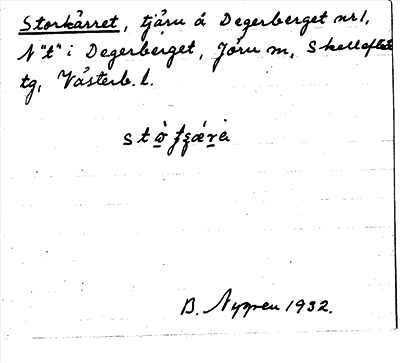 Storkärret, tjärn å Degerberget nr 1,
N "t" i Degerberget, Jörn sn, Skellefteå
tg, Västerb. l.
B. Nygren 1932.